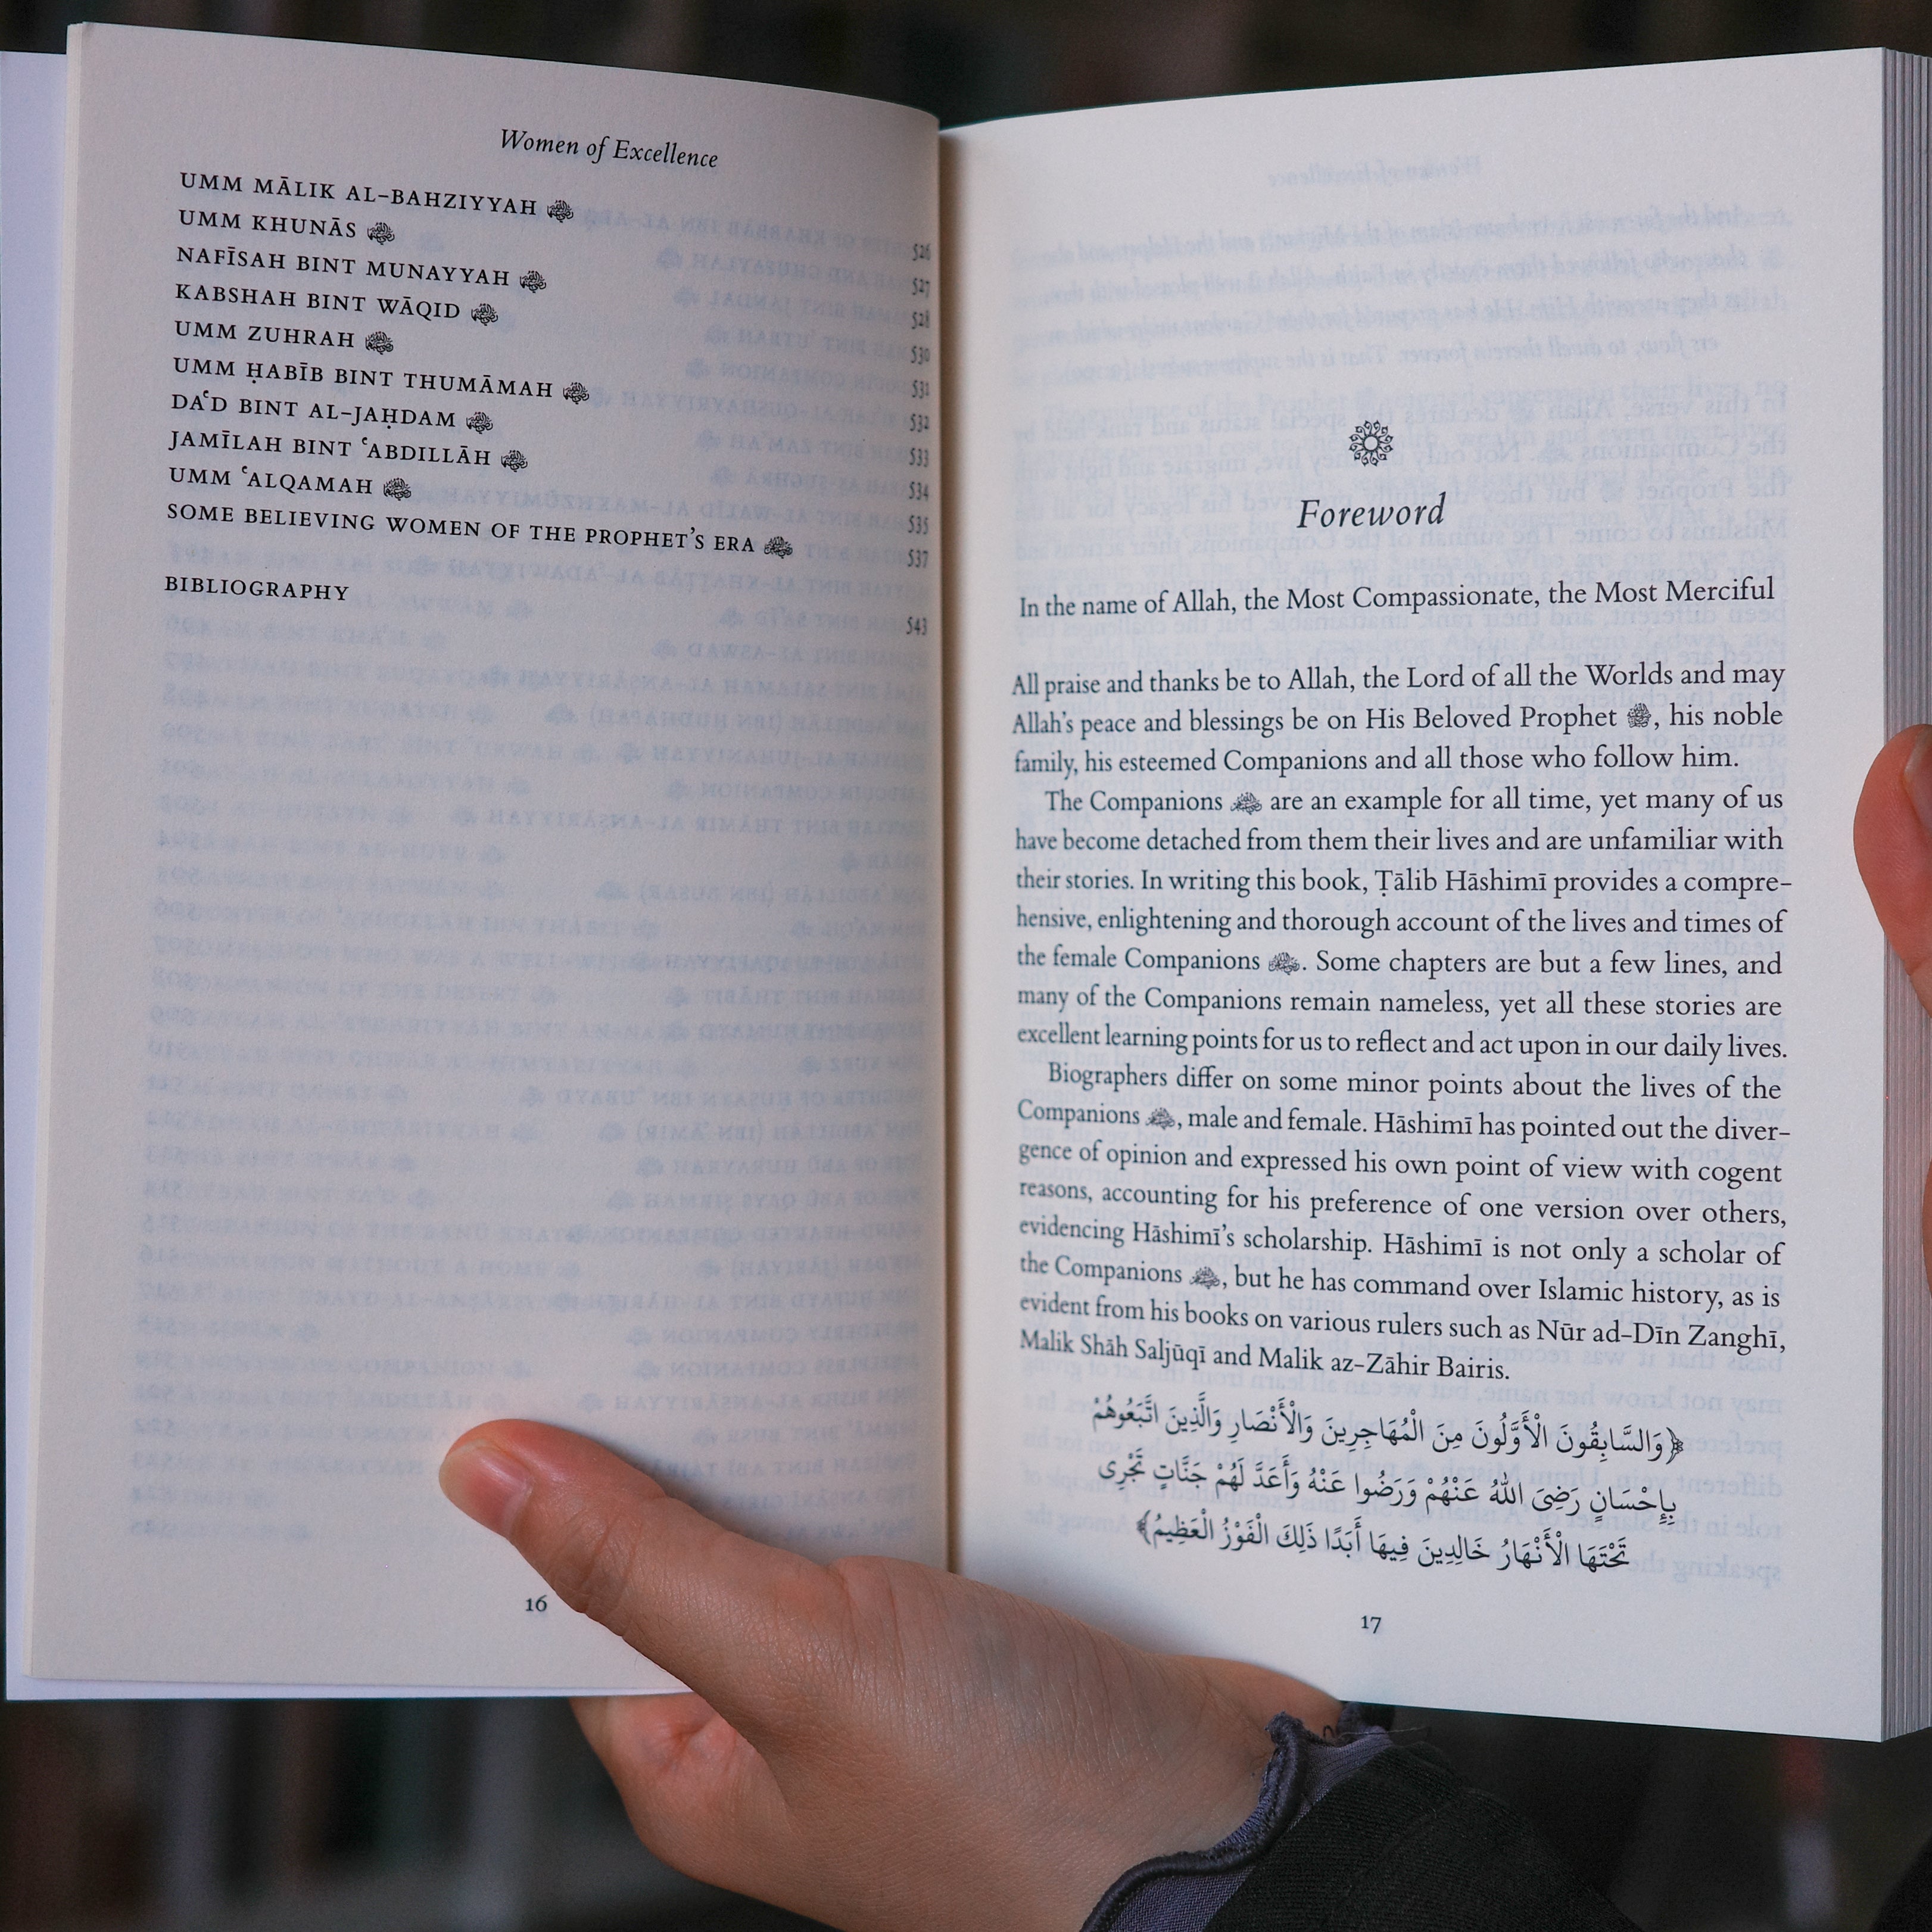 Women of Excellence
UMM MĀLIK AL-BAHZIYYAH 526
UMM KHUNĀS 527
NAFĪSAH BINT MUNAYYAH 528
KABSHAH BINT WĀQID 530
UMM ZUHRAH 531
UMM ḤABĪB BINT THUMĀMAH 532
DAʿD BINT AL-JAḤDAM 533
JAMĪLAH BINT ʿABDILLĀH 534
UMM ʿALQAMAH 535
SOME BELIEVING WOMEN OF THE PROPHET'S ERA 537
BIBLIOGRAPHY 543
16
Foreword
In the name of Allah, the Most Compassionate, the Most Merciful
All praise and thanks be to Allah, the Lord of all the Worlds and may
Allah's peace and blessings be on His Beloved Prophet ﷺ, his noble
family, his esteemed Companions and all those who follow him.
The Companions are an example for all time, yet many of us
have become detached from them their lives and are unfamiliar with
their stories. In writing this book, Ṭālib Hāshimī provides a compre-
hensive, enlightening and thorough account of the lives and times of
the female Companions. Some chapters are but a few lines, and
many of the Companions remain nameless, yet all these stories are
excellent learning points for us to reflect and act upon in our daily lives.
Biographers differ on some minor points about the lives of the
Companions, male and female. Hāshimī has pointed out the diver-
gence of opinion and expressed his own point of view with cogent
reasons, accounting for his preference of one version over others,
evidencing Hāshimī's scholarship. Hāshimī is not only a scholar of
the Companions, but he has command over Islamic history, as is
evident from his books on various rulers such as Nūr ad-Dīn Zanghī,
Malik Shāh Saljūqī and Malik az-Zāhir Bairis.
﴿وَالسَّابِقُونَ الْأَوَّلُونَ مِنَ الْمُهَاجِرِينَ وَالْأَنْصَارِ وَالَّذِينَ اتَّبَعُوهُمْ
بِإِحْسَانٍ رَضِيَ اللهُ عَنْهُمْ وَرَضُوا عَنْهُ وَأَعَدَّ لَهُمْ جَنَّاتٍ تَجْرِى
تَحْتَهَا الْأَنْهَارُ خَالِدِينَ فِيهَا أَبَدًا ذَلِكَ الْفَوْزُ الْعَظِيمُ﴾
17